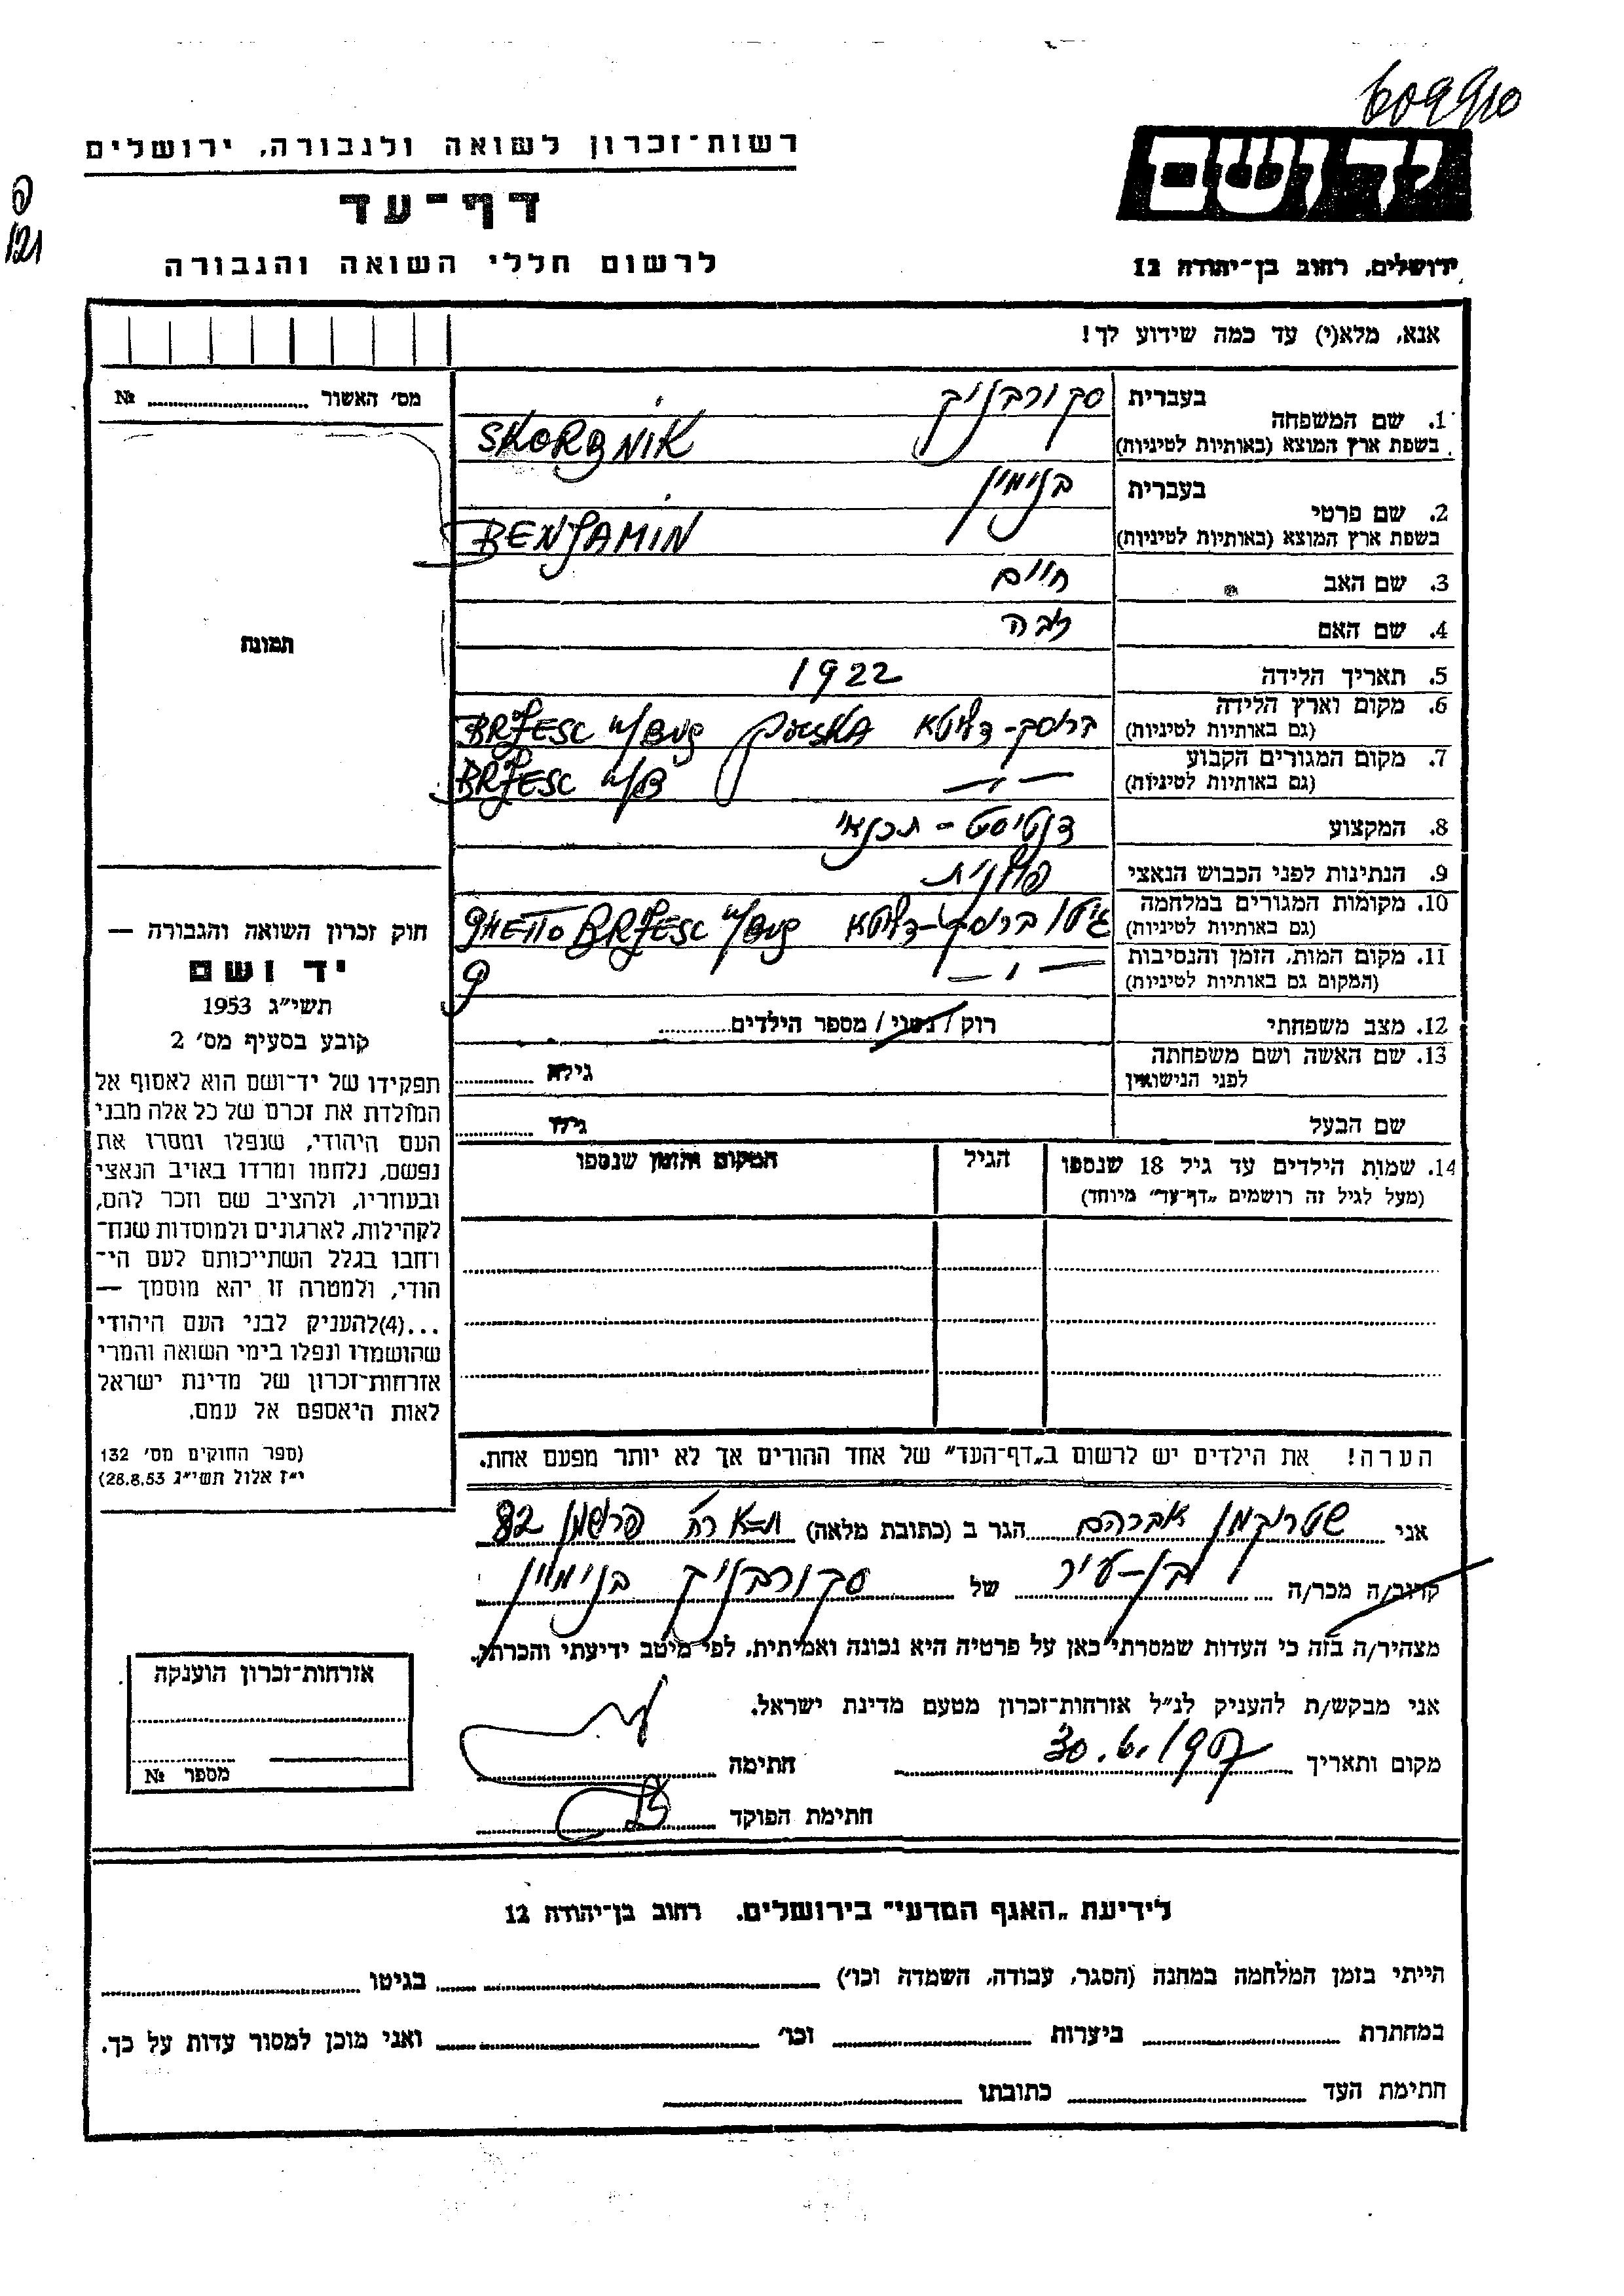 609910
יד ושם
רשות־זכרון לשואה ולגבורה, ירושלים
דף־עד
לרשום חללי השואה והגבורה
ירושלים, רחוב בן־יהודה 12
121
אנא, מלא(י) עד כמה שידוע לך!
מס' האשור № ..........
תמונה
1. שם המשפחה
בעברית סקורבניק
בשפת ארץ המוצא (באותיות לטיניות) SKORBNIK
2. שם פרטי
בעברית בנימין
בשפת ארץ המוצא (באותיות לטיניות) BENJAMIN
3. שם האב חיים
4. שם האם
5. תאריך הלידה 1922
6. מקום וארץ הלידה
(גם באותיות לטיניות) בריסק-דליטא POLSKA BRZESC n/Bug
7. מקום המגורים הקבוע
(גם באותיות לטיניות) — " — BRZESC n/B
8. המקצוע דנטיסט - תכנאי
9. הנתינות לפני הכבוש הנאצי פולנית
10. מקומות המגורים במלחמה
(גם באותיות לטיניות) גיטו בריסק-דליטא GHETTO BRZESC n/Bug
11. מקום המות, הזמן והנסיבות
(המקום גם באותיות לטיניות) — " —
12. מצב משפחתי רוק / נשוי / מספר הילדים..........
13. שם האשה ושם משפחתה
לפני הנישואין גילה ..........
שם הבעל גילו ..........
14. שמות הילדים עד גיל 18 שנספו הגיל המקום והזמן שנספו
(מעל לגיל זה רושמים „דף־עד" מיוחד)
הערה! את הילדים יש לרשום ב„דף־העד" של אחד ההורים אך לא יותר מפעם אחת.
חוק זכרון השואה והגבורה —
יד ושם
תשי"ג 1953
קובע בסעיף מס' 2
תפקידו של יד־ושם הוא לאסוף אל
המולדת את זכרם של כל אלה מבני
העם היהודי, שנפלו ומסרו את
נפשם, נלחמו ומרדו באויב הנאצי
ובעוזריו, ולהציב שם וזכר להם,
לקהילות, לארגונים ולמוסדות שנח־
רחבו בגלל השתייכותם לעם הי־
הודי, ולמטרה זו יהא מוסמך —
...(4)להעניק לבני העם היהודי
שהושמדו ונפלו בימי השואה והמרי
אזרחות־זכרון של מדינת ישראל
לאות היאספם אל עמם.
(ספר החוקים מס' 132
י"ז אלול תשי"ג 28.8.53)
אני שטריקמן אברהם הגר ב (כתובת מלאה) ת"א רח' פרישמן 82
קרוב/ה מכר/ה בן-עיר של סקורבניק בנימין
מצהיר/ה בזה כי העדות שמסרתי כאן על פרטיה היא נכונה ואמיתית, לפי מיטב ידיעתי והכרתי.
אני מבקש/ת להעניק לנ"ל אזרחות־זכרון מטעם מדינת ישראל.
מקום ותאריך חתימה
חתימת הפוקד
אזרחות־זכרון הוענקה
מספר №
לידיעת „האגף המדעי" בירושלים. רחוב בן־יהודה 12
הייתי בזמן המלחמה במחנה (הסגר, עבודה, השמדה וכו') .......... בגיטו ..........
במחתרת .......... ביערות .......... וכו' .......... ואני מוכן למסור עדות על כך.
חתימת העד .......... כתובתו ..........